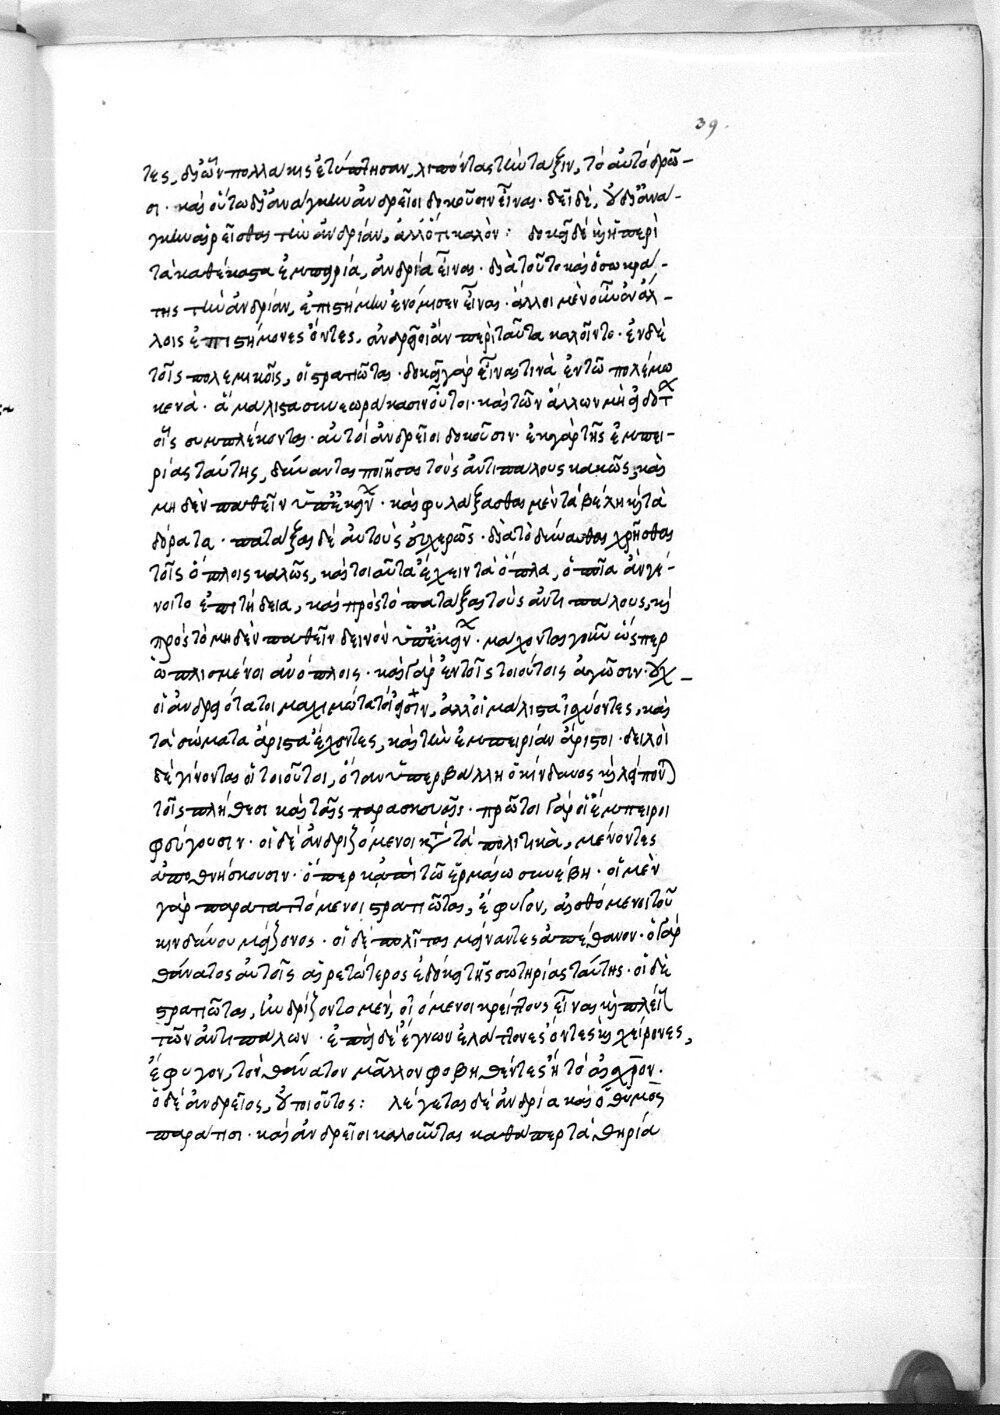 39.
τες, δι' ὧν πολλάκις ἐτύπτησαν, λιπόντας τὴν τάξιν, τὸ αὐτὸ δρῶ-
σι. καὶ οὕτω δι' ἀνάγκην ἀνδρεῖοι δοκοῦσιν εἶναι. δεῖ δέ, οὐ δι' ἀνά-
γκην αἱρεῖσθαι τὴν ἀνδρίαν, ἀλλ' ὅτι καλόν: δοκεῖ δὲ καὶ ἡ περὶ
τὰ καθέκαστα ἐμπειρία, ἀνδρία εἶναι. διὰ τοῦτο καὶ ὁ σωκρά-
της τὴν ἀνδρίαν, ἐπιστήμην ἐνόμισεν εἶναι. ἄλλοι μὲν οὖν ἐν ἄλ-
λοις ἐπιστήμονες ὄντες, ἀνδρεῖοι ἂν περὶ ταῦτα καλοῖντο. ἐν δὲ
τοῖς πολεμικοῖς, οἱ στρατιῶται. δοκεῖ γὰρ εἶναι τινὰ ἐν τῷ πολέμῳ
κενά. ἃ μάλιστα συνεωράκασιν οὗτοι. καὶ τῶν ἄλλων μὴ εἰδότ
οἷς συμπλέκονται. αὐτοὶ ἀνδρεῖοι δοκοῦσιν. ἐκ γὰρ τῆς ἐμπει-
ρίας ταύτης, δύνανται ποιῆσαι τοὺς ἀντιπάλους κακῶς, καὶ
μηδὲν παθεῖν ὑπ' ἐκείν. καὶ φυλάξασθαι μὲν τὰ βέλη καὶ τὰ
δόρατα. πατάξαι δὲ αὐτοὺς εὐχερῶς. διὰ τὸ δύνασθαι χρῆσθαι
τοῖς ὅπλοις καλῶς, καὶ τοιαῦτα ἔχειν τὰ ὅπλα, ὁποῖα ἂν γέ-
νοιτο ἐπιτήδεια, καὶ πρὸς τὸ πατάξαι τοὺς ἀντιπάλους, καὶ
πρὸς τὸ μηδὲν παθεῖν δεινὸν ὑπ' ἐκείν. μάχονται γοῦν ὥσπερ
ὡπλισμένοι ἀνόπλοις. καὶ γὰρ ἐν τοῖς τοιούτοις ἀγῶσιν. οὐχ-
οἱ ἀνδρειότατοι μαχιμώτατοί εἰσιν, ἀλλ' οἱ μάλιστα ἰσχύοντες, καὶ
τὰ σώματα ἄριστα ἔχοντες, καὶ τὴν ἐμπειρίαν ἄριστοι. δειλοὶ
δὲ γίνονται οἱ τοιοῦτοι, ὅταν ὑπερβάλλῃ ὁ κίνδυνος καὶ λείπον
τοῖς πλήθεσι καὶ ταῖς παρασκευαῖς. πρῶτοι γὰρ οἱ ἔμπειροι
φεύγουσιν. οἱ δὲ ἀνδριζόμενοι κατὰ τὰ πολιτικὰ, μένοντες
ἀποθνήσκουσιν. ὅπερ κἀπὶ τῷ ἑρμαίῳ συνέβη. οἱ μὲν
γὰρ παραταττόμενοι στρατιῶται, ἔφυγον, αἰσθόμενοι τοῦ
κινδύνου μείζονος. οἱ δὲ πολῖται μείναντες ἀπέθανον. ὁ γὰρ
θάνατος αὐτοῖς αἱρετώτερος ἐδόκει τῆς σωτηρίας ταύτης. οἱ δὲ
στρατιῶται, ἠνδρίζοντο μέν, οἰόμενοι κρείττους εἶναι καὶ πλείς
τῶν ἀντιπάλων. ἐπεὶ δὲ ἔγνων ἐλάττονες ὄντες καὶ χείρονες,
ἔφυγον, τὸν θάνατον μᾶλλον φοβηθέντες ἢ τὸ αἰσχρόν.
ὁ δὲ ἀνδρεῖος, οὐ τοιοῦτος: λέγεται δὲ ἀνδρία καὶ ὁ θυμὸς
παρά τισι. καὶ ἀνδρεῖοι καλοῦνται καθάπερ τὰ θηρία